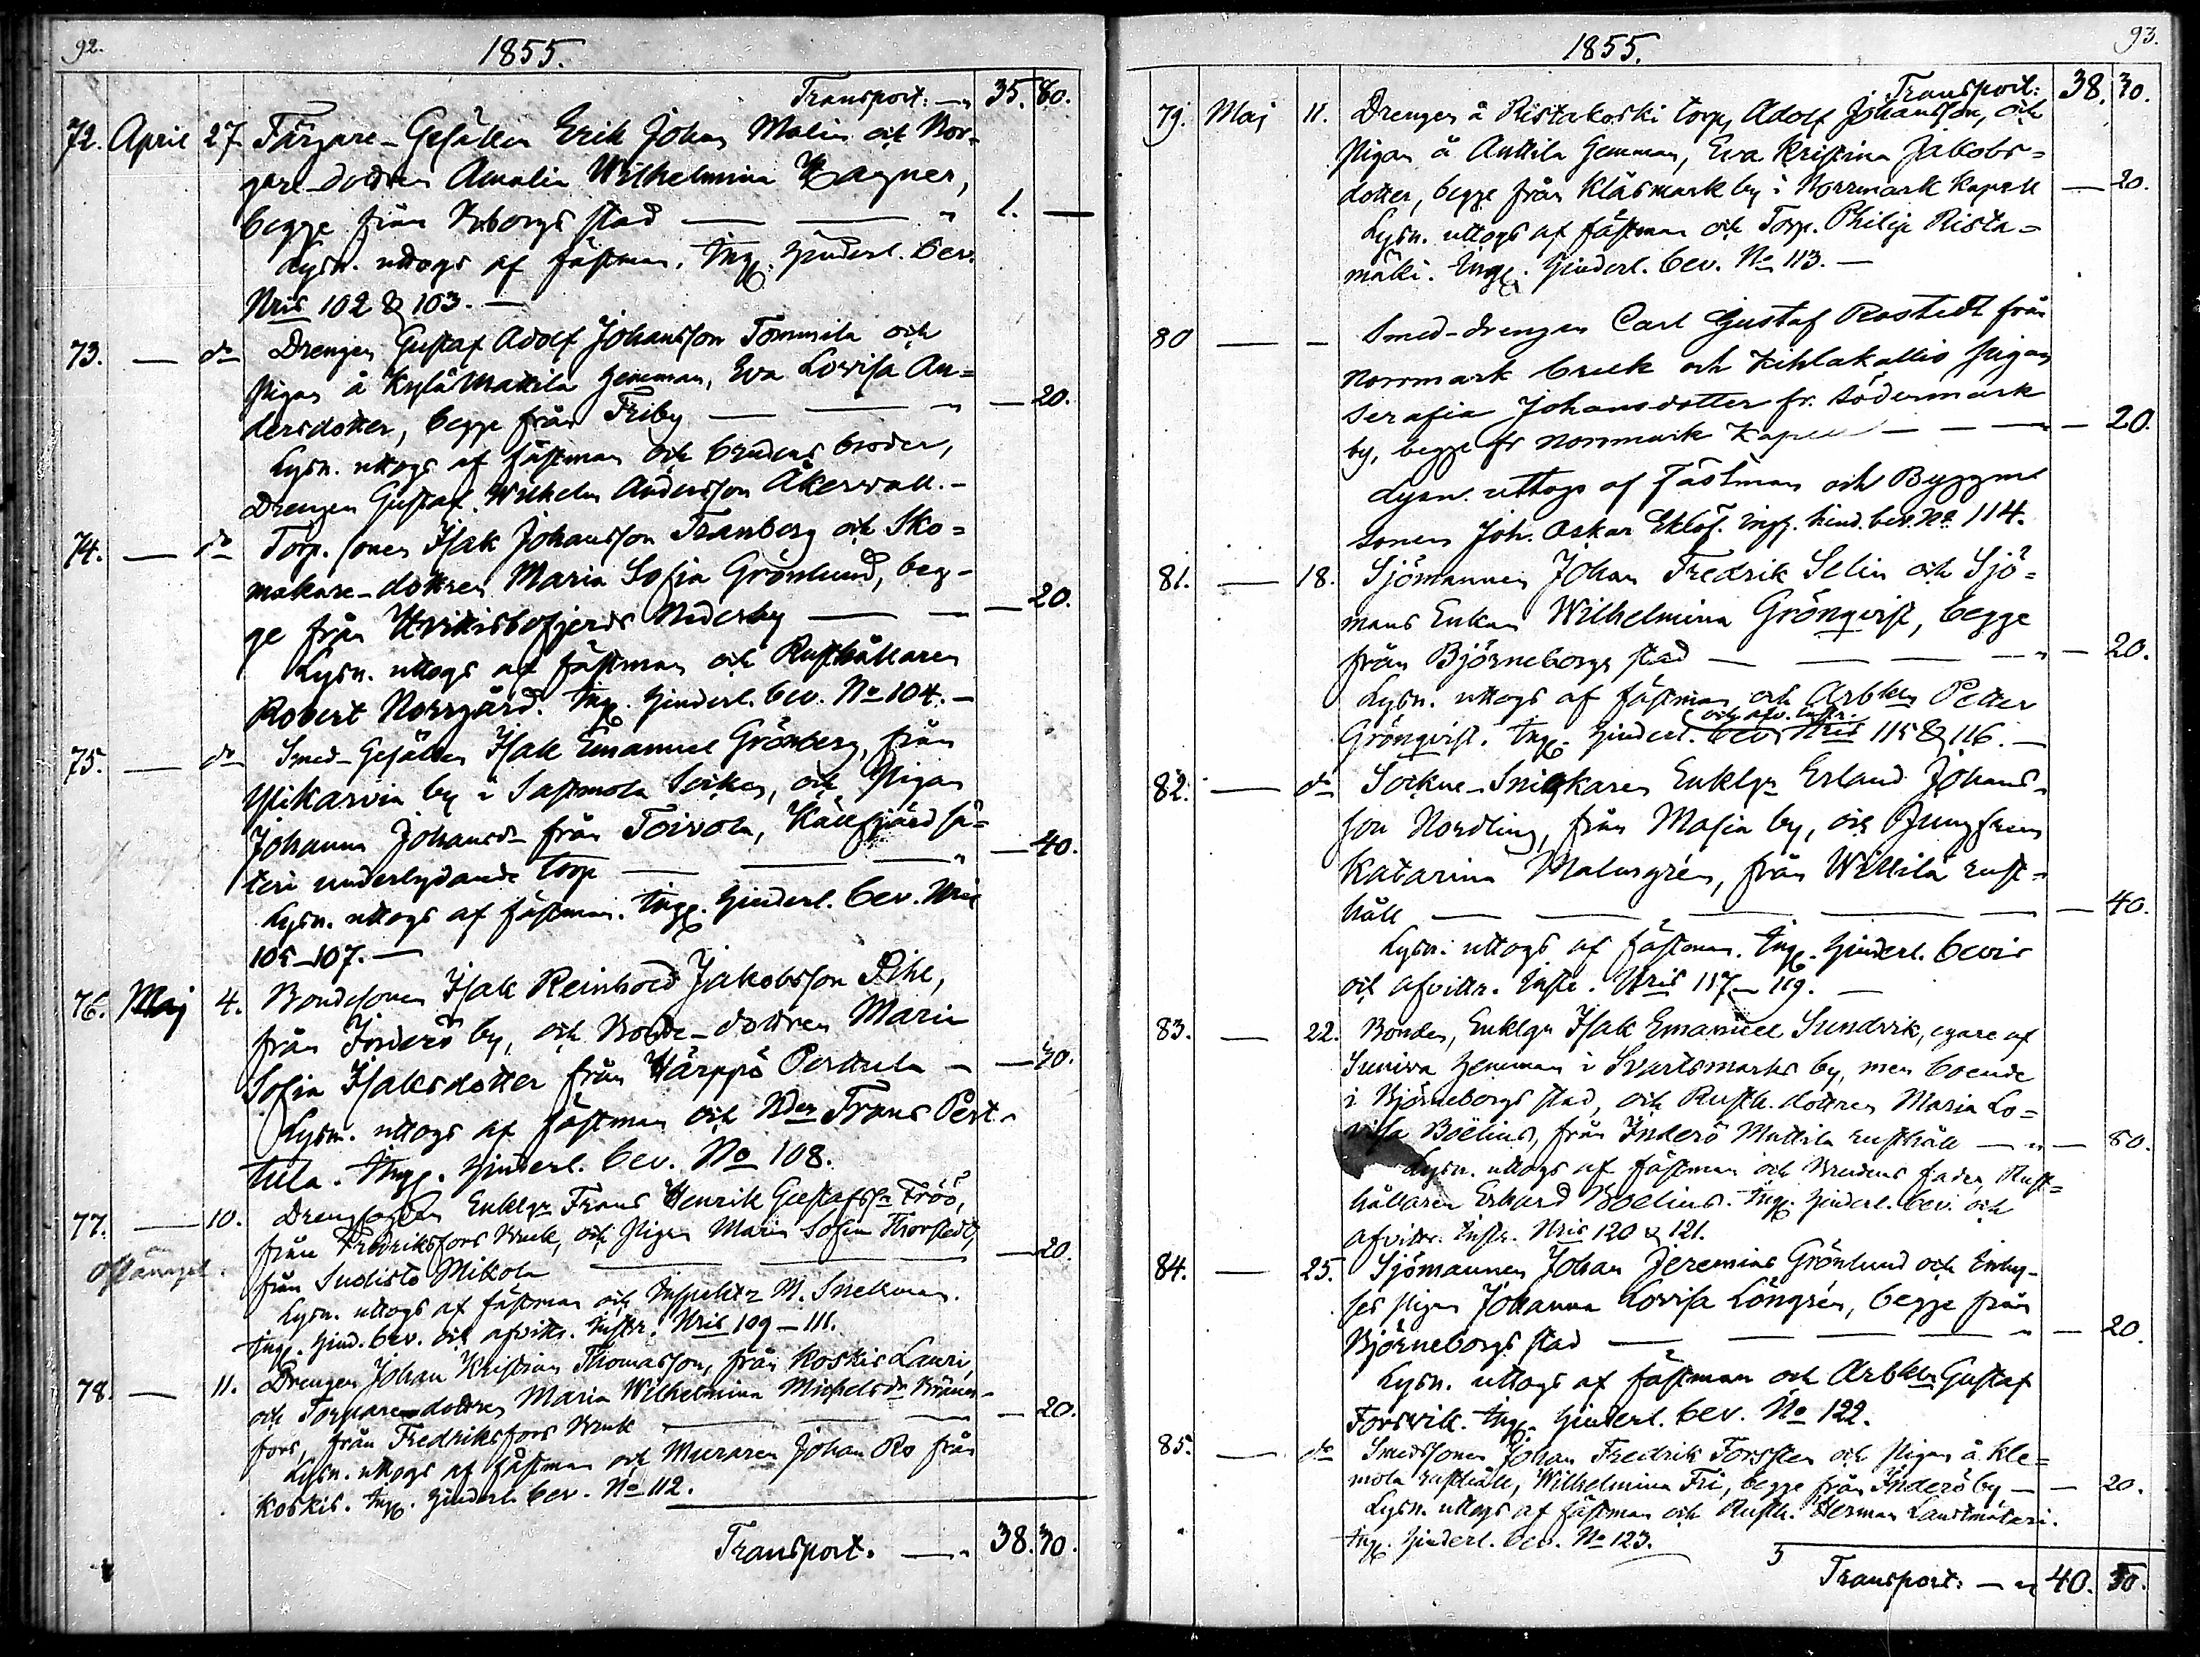 92.
1855.
Transport: — " 35. 80.
72. April 27. Färgare-Gesällen Erik Johan Malin och Bor-
gare-dottren Amalia Wilhelmina Wagner,
begge från Björneborgs stad — — " 1. —
Lysn. uttogs af fästman. Ingg. hinderl. bev.
Nris 102 & 103. —
73. — do Drengen Gustaf Adolf Johansson Tommila och
Pigan å Kylä Mattila hemman, Eva Lovisa An=
dersdotter, begge från Friby — — " — 20.
Lysn. uttogs af fästman och brudens broder,
Drengen Gustaf Wilhelm Andersson Åkerwall. —
74. — do Torp. sonen Isak Johansson Tranberg och Sko=
makare-dottren Maria Sofia Grönlund, beg-
ge från Hvittisbofjerds Nederby — — — 20.
Lysn. uttogs af fästman och Rusthållaren
Robert Norrgård. Ingg. hinderl. bev. No 104. —
75. — do Smed-Gesällen Isak Emanuel Grönberg, från
Ylikasvia by i Sastmola Socken, och Pigan
Johanna Johansdr från Toivola, Källfjärd sä=
teri underlydande torp — — " — 40.
Lysn. uttogs af fästman. Ingg. hinderl. bev. Nris
105–107. —
76. Maj 4. Bondesonen Isak Reinhold Jakobsson Pihl,
från Inderö by, och Bonde-dottren Maria
Sofia Isaksdotter från Härpö Perttula — — 30.
Lysn. uttogs af fästman och Bden Frans Pert-
tula. Ingg. hinderl. bev. No 108.
77. — 10. Enklgn Frans Henrik Gustafsson Fröö,
från Fredriksfors Bruk, och Pigan Maria Sofia Thorstedt,
från Sudisto Mikola — — — 20.
Lysn. uttogs af fästman och Inspektor M. Snellman.
Ingg. hind. bev. och afvittr. Instr. Nris 109–111.
78. — 11. Drengen Johan Kristian Thomasson, från Koskis Lauri,
och Torpare-dottren Maria Wilhelmina Michelsdr Bränn-
fors, från Fredriksfors Bruk — — — 20.
Lysn. uttogs af fästman och Muraren Johan Ro från
Koskis. Ingg. hinderl. bev. No 112.
Transport. — " 38. 30.
93.
1855.
Transport: 38. 30.
79. Maj 11. Drengen å Ristakoski torp, Adolf Johansson, och
Pigan å Anttila hemman, Eva Kristina Jakobs=
dotter, begge från Kläsmark by i Norrmark Kapell — 20.
Lysn. uttogs af fästman och Torp. Philip Rista=
mäki. Ingg. hinderl. bev. No 113. —
80 — – Smed-drengen Carl Gustaf Rostedt från
Norrmark bruk och Kihlakallio pigan
Serafia Johansdotter fr. Södermark
by, begge fr Norrmark Kapell — — — 20.
Lysn. uttogs af fästman och Byggm.
Sonen Joh. Oskar Eklöf. Ingg. hind. bev. No 114.
81. — 18. Sjömannen Johan Fredrik Selin och Sjö=
mans Enkan Wilhelmina Grönqvist, begge
från Björneborgs stad — — — " — 20.
Lysn. uttogs af fästman och Arbkln Petter
Grönqvist. Ingg. hinderl. bev. och afv. Instr. Nris 115 & 116. —
82. — do Sockne-Snickaren Enklgn Erland Johans-
son Nordling, från Masia by, och Jungfrun
Katarina Malmgrén, från Willilä rust=
håll — — — — — 40.
Lysn. uttogs af fästman. Ingg. hinderl. bevis
och afvittr. Instr. Nris 117–119. —
83. — 22. Bonden, Enklgn Isak Emanuel Sundvik, egare af
Suniva hemman i Svartsmarks by, men boende
i Björneborgs stad, och Rusth. dottren Maria Lo=
visa Boëlius, från Inderö Mattila rusthåll — " — 80.
Lysn. uttogs af fästman och brudens fader, Rust=
hållaren Erhard Boelius. Ingg. hinderl. bev. och
afvittr. Instr. Nris 120 & 121.
84. — 25. Sjömannen Johan Jeremias Grönlund och Inhy-
ses pigan Johanna Lovisa Löngrén, begge från
Björneborgs stad — — — " — 20.
Lysn. uttogs af fästman och Arbkln Gustaf
Forsvik. Ingg. hinderl. bev. No 122.
85. — do Smedssonen Johan Fredrik Forssten och Pigan å Kle=
mola rusthåll, Wilhelmina Fri, begge från Inderö by — — 20.
Lysn. uttogs af fästman och Rusth. Herman Lantmäteri.
Ingg. hinderl. bev. No 123.
Transport: — " 40. 50.